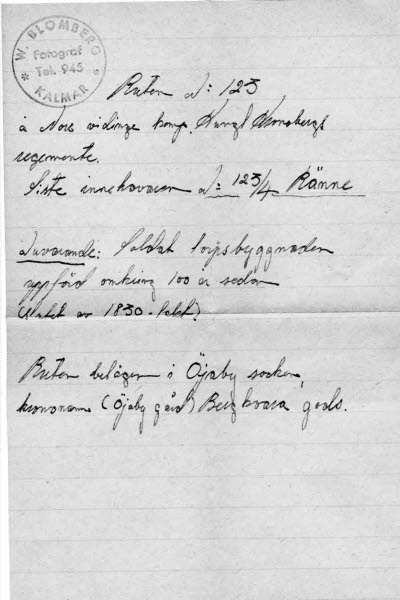 W. BLOMBERG
Fotograf
Tel. 945
KALMAR
Roten N: 123
å Norrvidinge komp. Kungl Kronobergs
regemente.
Siste innehavaren N: 123/4 Ränne
Nuvarande: Soldat torpsbyggnaden
uppförd omkring 100 år sedan
av 1830-talet)
Roten belägen i Öjaby socken,
(Öjaby gård) Bergkvara gods.